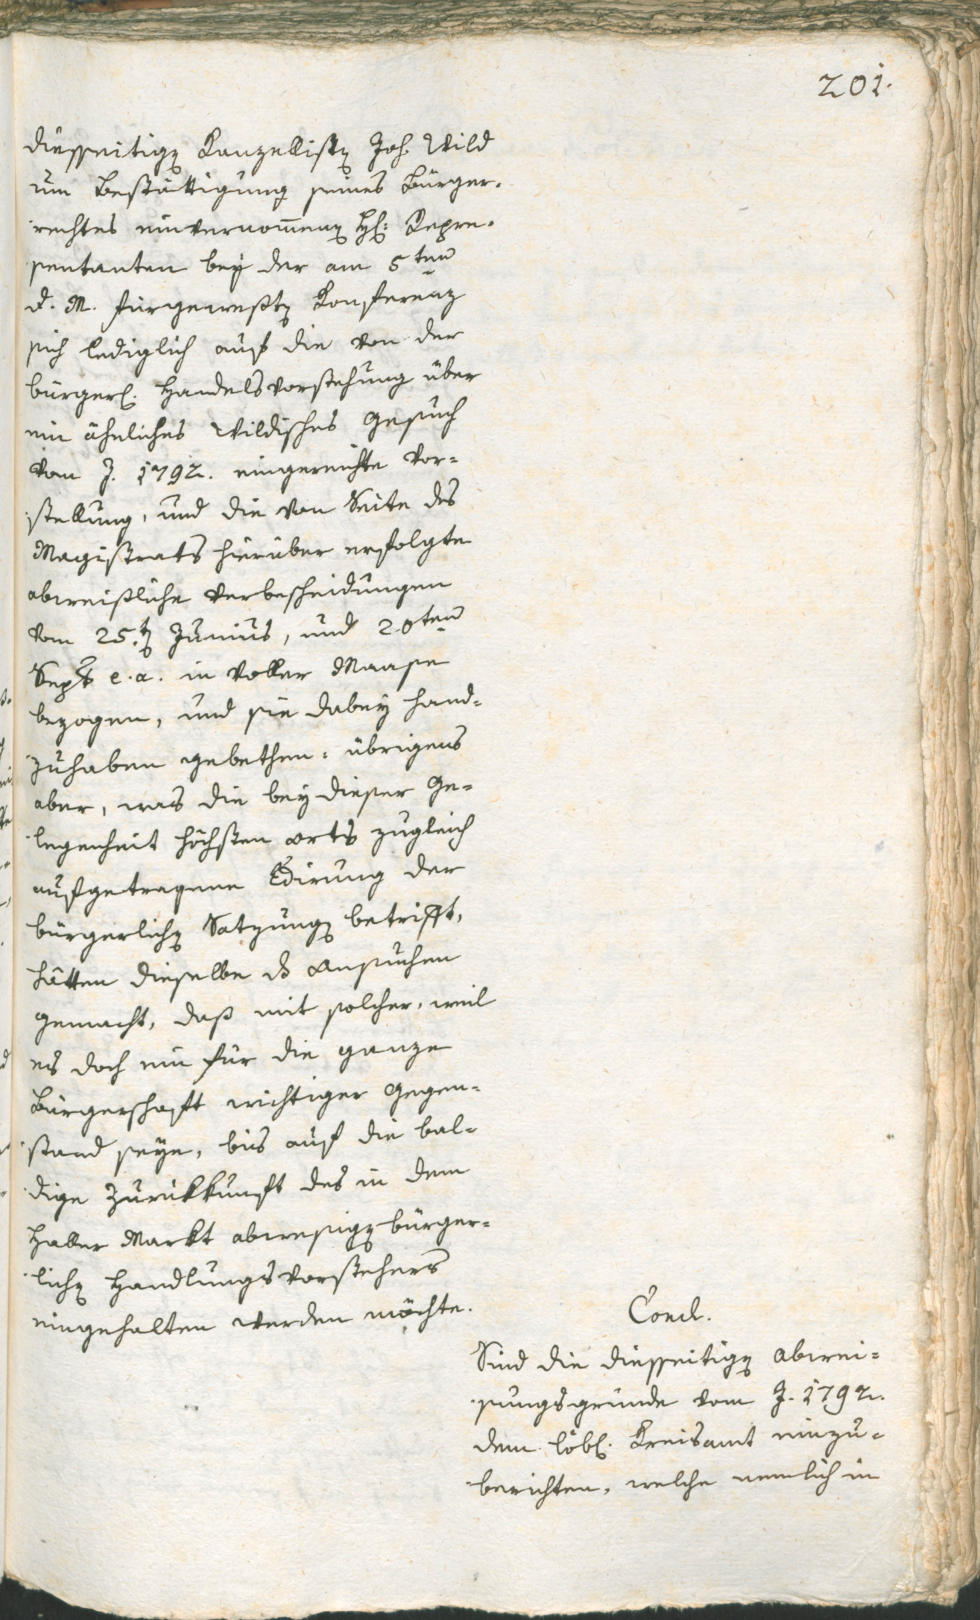 201.
diesseitigen Kanzellisten Joh. Wild
um Bestättigung seines Bürger-
rechtes einvernommenen HH: Repre-
sentanten bey der am 5ten
d. M. fürgewesten Konferenz
sich lediglich auf die von der
bürgerl. Handelsvorstehung über
ein ähnliches Wildisches Gesuch
vom J. 1792. eingereichte Vor-
stellung, und die von Seite des
Magistrats hierüber erfolgte
abweißliche Verbescheidungen
vom 25.ten Junius, und 20ten
Sept. e. a. in voller Maase
bezogen, und sie dabey hand-
zuhaben gebethen: übrigens
aber, was die bey dieser Ge-
legenheit höchsten Orts zugleich
aufgetragene Edirung der
bürgerlichen Satzungen betrifft,
hätten dieselbe das Ansuchen
gemacht, daß mit solcher, weil
es doch ein für die ganze
Bürgerschaft wichtiger Gegen-
stand seye, bis auf die bal-
dige Zurükkunft des in dem
Haller Markt abwesigen bürger-
lichen Handlungsvorstehers
eingehalten werden möchte.
Concl.
Sind die diesseitigen Abwei-
sungsgründe vom J. 1792.
dem löbl. Kreisamt einzu-
berichten, welche nemlich in